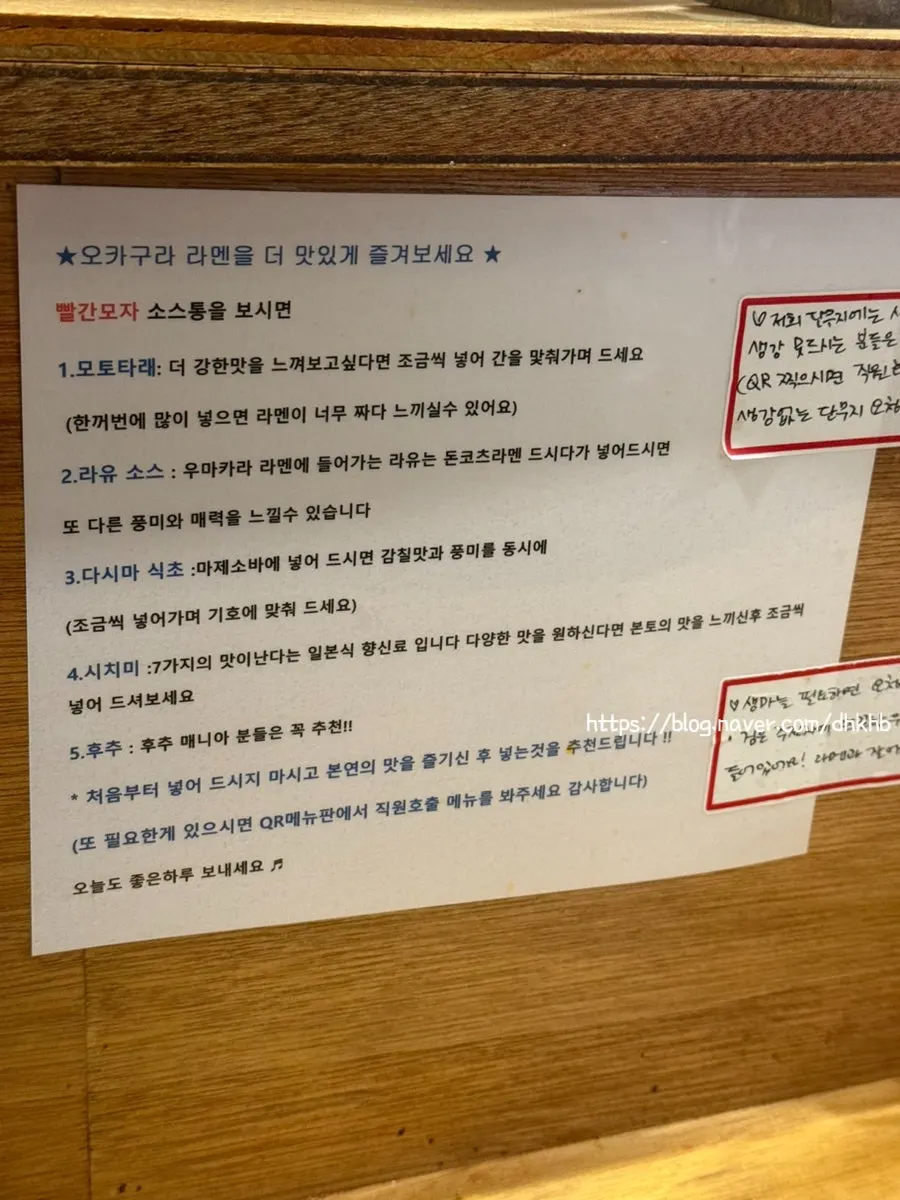 ★오카구라 라멘을 더 맛있게 즐겨보세요 ★
빨간모자 소스통을 보시면
1.모토타래: 더 강한맛을 느껴보고싶다면 조금씩 넣어 간을 맞춰가며 드세요
(한꺼번에 많이 넣으면 라멘이 너무 짜다 느끼실수 있어요)
2.라유 소스 : 우마카라 라멘에 들어가는 라유는 돈코츠라멘 드시다가 넣어드시면
또 다른 풍미와 매력을 느낄수 있습니다
3.다시마 식초 :마제소바에 넣어 드시면 감칠맛과 풍미를 동시에
(조금씩 넣어가며 기호에 맞춰 드세요)
4.시치미 :7가지의 맛이난다는 일본식 향신료 입니다 다양한 맛을 원하신다면 본토의 맛을 느끼신후 조금씩
넣어 드셔보세요
5.후추 : 후추 매니아 분들은 꼭 추천!!
* 처음부터 넣어 드시지 마시고 본연의 맛을 즐기신 후 넣는것을 추천드립니다 !!
(또 필요한게 있으시면 QR메뉴판에서 직원호출 메뉴를 봐주세요 감사합니다)
오늘도 좋은하루 보내세요 ♬
저희 단무지에는
생강 못드시는 분들은
(QR 찍으시면 직원
생강없는 단무지 요청
생마늘 필요하면 요청
라멘과
https://blog.naver.com/dhkhb